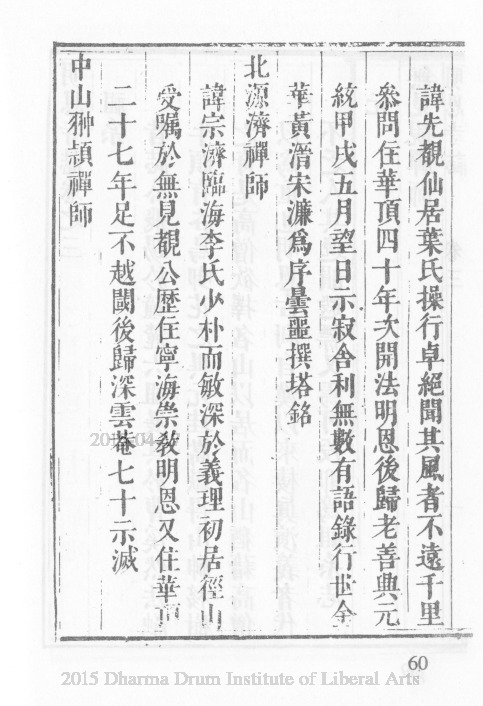 諱先覩仙居葉氏操行卓絕聞其風者不遠千里
叅問住華頂四十年次開法明恩後歸老善興元
統甲戌五月望日示寂舍利無數有語錄行世金
華黃溍宋濂爲序曇噩撰塔銘
北源濟禪師
諱宗濟臨海李氏少朴而敏深於義理初居徑山
受囑於無見覩公歷住寧海崇敎明恩又住華頂
二十七年足不越閫後歸深雲菴七十示滅
中山翀頴禪師
60
2015 Dharma Drum Institute of Liberal Arts